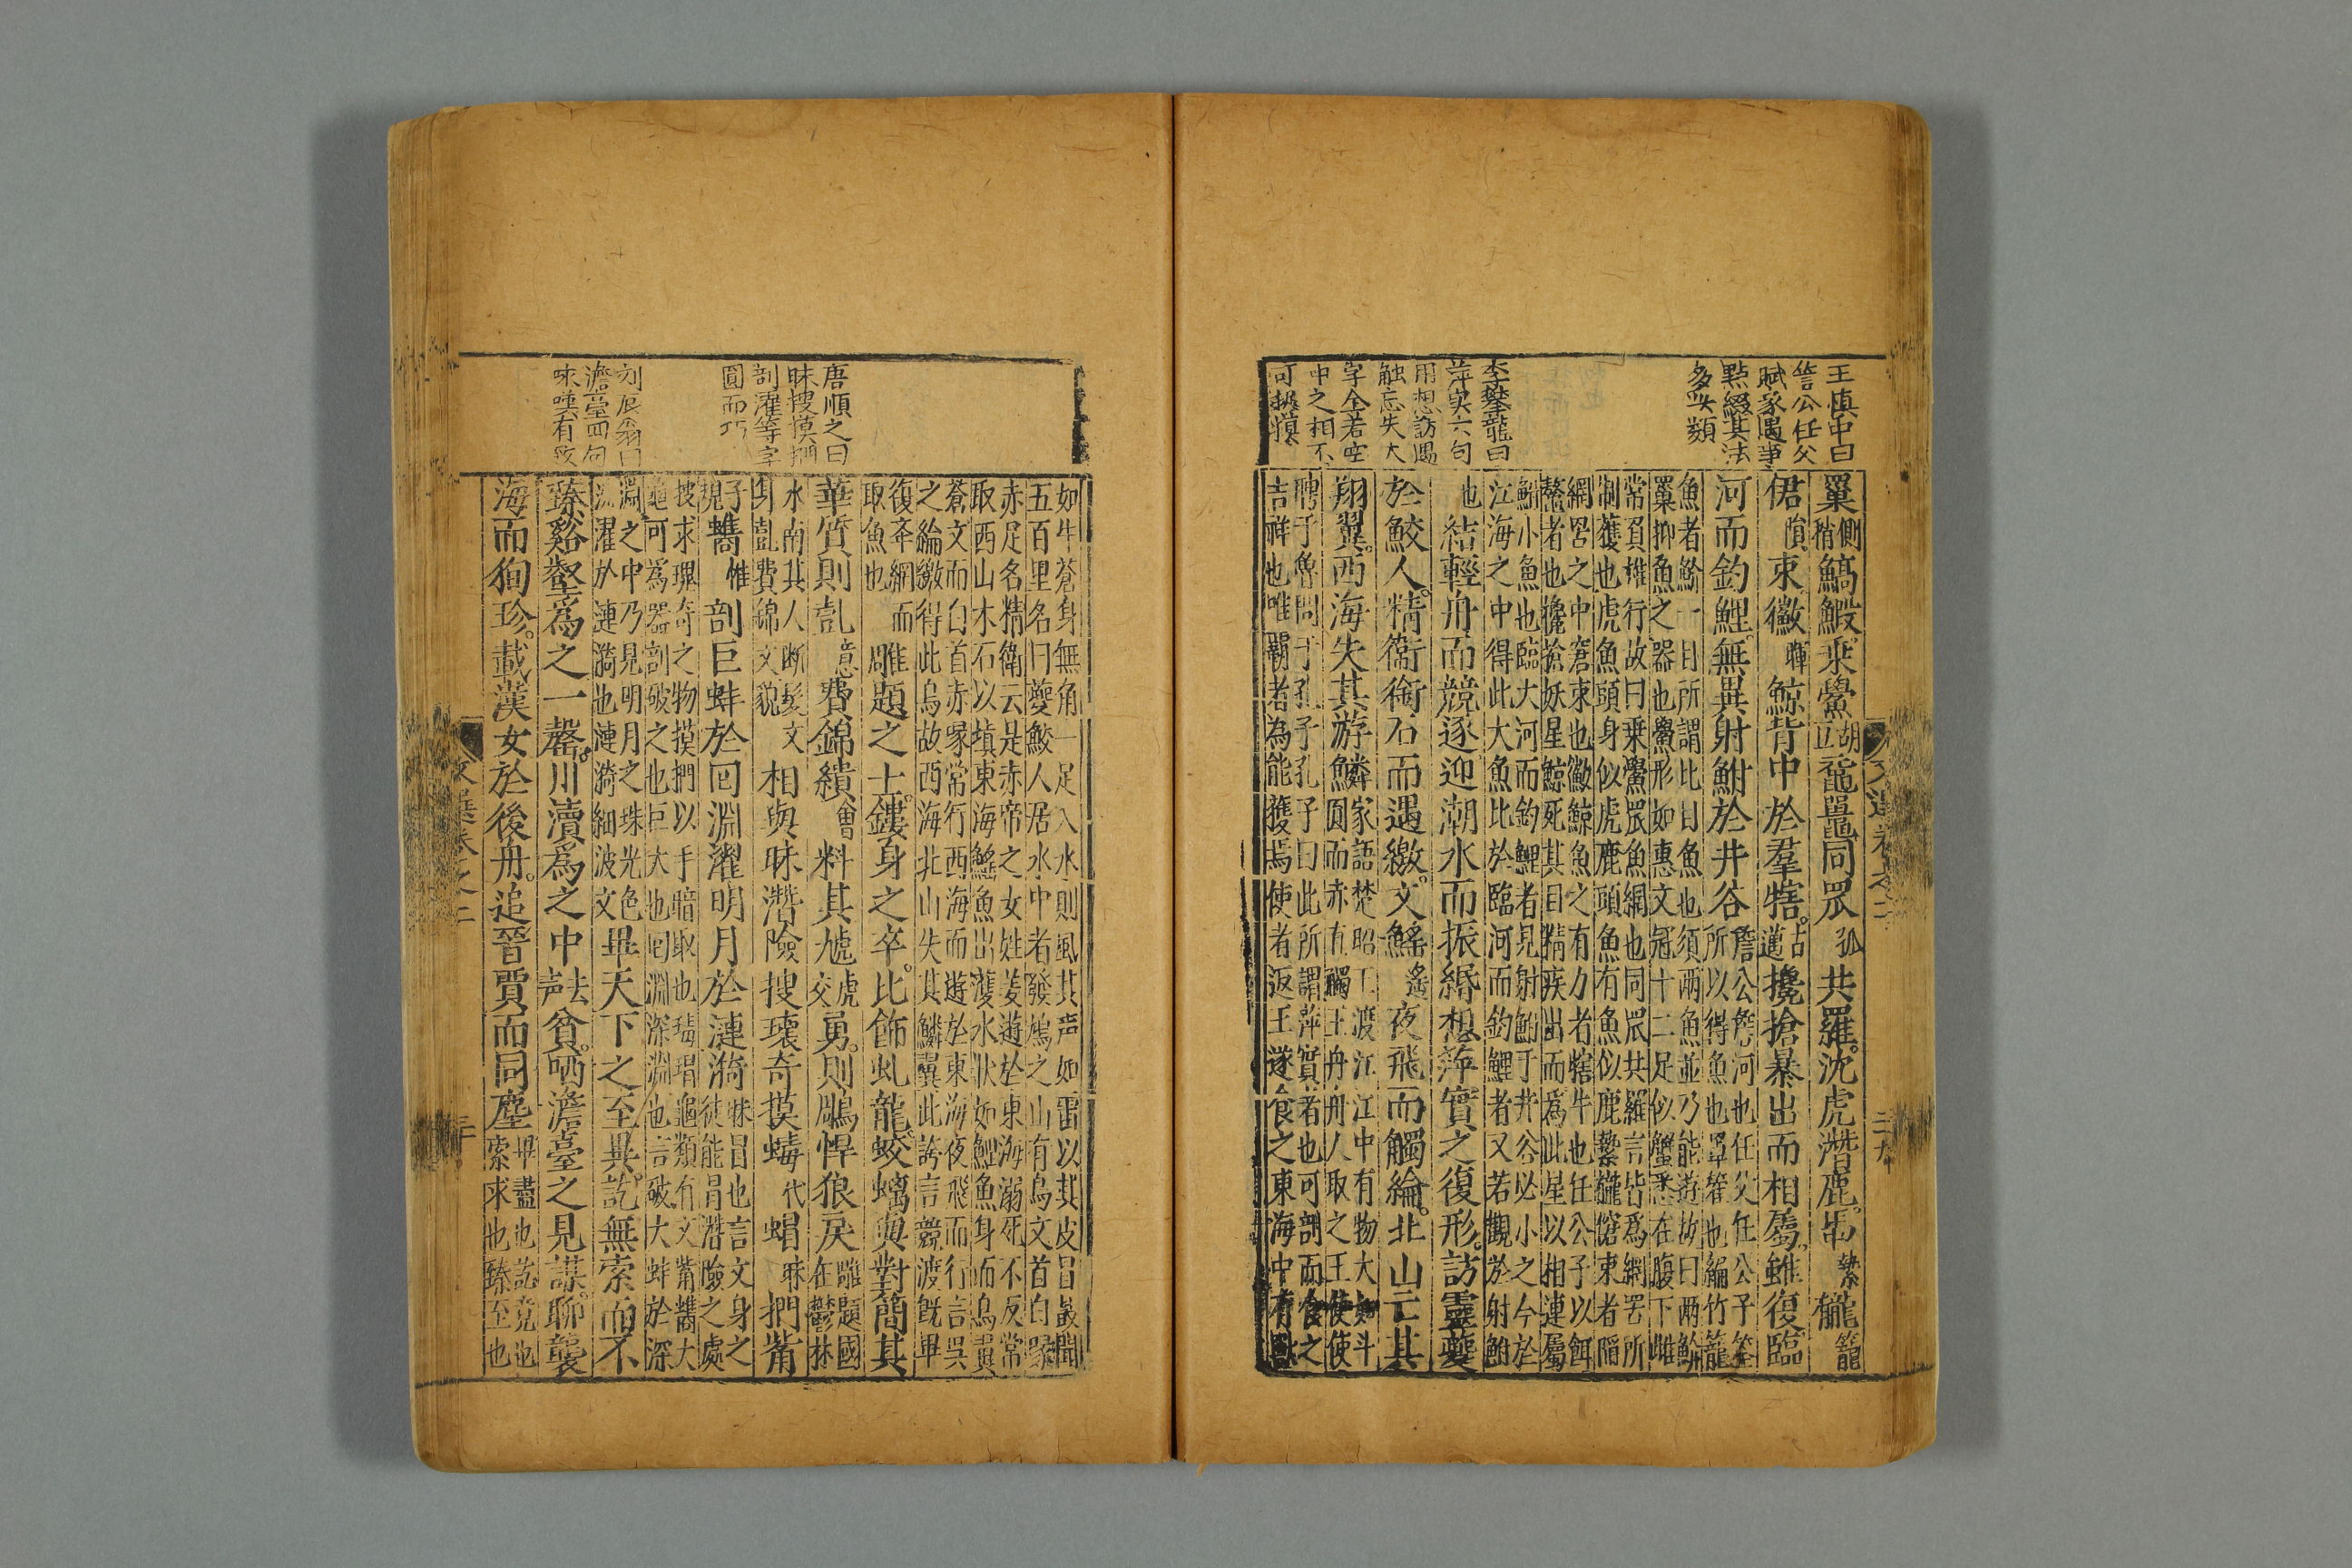 王慎中曰
詹公任父
賦家遇事
點綴其法
多此類
李攀龍曰
萍实六句
用想訪遇
触忘失六
字全若空
中之相不
可捉摸
罺側稍鰝鰕乗鱟胡豆黿鼉同罛孤共羅沈虎潛鹿馽縶𪚘籠
僒隕束徽暉鯨背中於羣犗古邁攙搶暴出而相屬雖復臨
河而釣鯉無異射鮒於井谷詹公詹河也任父任公子筌
所以得魚也罩籗也編竹籠
魚者鰜一目所謂比目魚也須兩魚並乃能遊故曰兩鰜
罺抑魚之器也鱟形如惠文冠十二足似蟹悉在腹下雌
常負雄行故曰乗鱟罛魚網也同罛共羅言皆爲網罟所
制獲也虎魚頭身似虎鹿頭魚有魚似鹿縶𪚘僒束者陷
網罟之中窘束也徽鯨魚之有力者犗牛也任公子以餌
鰲者也攙搶妖星鯨死其目精疾出而爲此星以相連屬
鮒小魚也臨大河而釣鯉者見射鮒于井谷必小之今於
江海之中得此大魚比於臨河而釣鯉者又若觀於射鮒
也結輕舟而競逐迎潮水而振緡想萍實之復形訪靈夔
於鮫人精衞銜石而遇繳文鰩遙夜飛而觸綸北山亡其
翔翼西海失其游鱗家語楚昭王渡江江中有物大如斗
圓而赤直觸王舟舟人取之王使使
聘于魯問于孔子孔子曰此所謂萍實者也可剖而食之
吉祥也唯覇者為能獲焉使者返王遂食之東海中有獸
文選卷之二
二九
唐順之曰
昧搜摸捫
剖濯等字
圓而巧
刘辰翁曰
澹臺四句
味嘆有致
如牛蒼身無角一足入水則風其声如雷以其皮冒鼓聞
五百里名曰夔鮫人居水中者發鳩之山有鳥文首白喙
赤足名精衛云是赤帝之女姓姜遊於東海溺死不反常
取西山木石以塡東海鰩魚出濩水狀如鯉魚身而鳥翼
蒼文而白首赤喙常行西海而遊於東海夜飛而行言吳
之綸繳得此鳥故西海北山失其鱗翼此誇言競渡既畢
復夲網而
取魚也雕題之士鏤身之卒比飾虬龍蛟螭與對簡其
華質則亄意費錦繢會料其虓虎交勇則鵰悍狼戾雕題國
在鬱林
水南其人断髮文
身亄費錦文貌相與昧潛險搜瓌奇摸蝳代蝐昧捫觜
子規蠵惟剖巨蚌於囘淵濯明月於漣漪昧冒也言文身之
徒能冒潛險之處
捜求瓌奇之物摸捫以手暗取也蝳瑁龜類有文觜蠵大
龜可為器剖破之也巨大也囘淵深淵也言破大蚌於深
淵之中乃見明月之珠光色
洗濯於漣漪也漣漪細波文畢天下之至異訖無索而不
臻谿壑爲之一罄川瀆爲之中去声貧哂澹臺之見謀聊襲
海而徇珍載漢女於後舟追晉賈而同塵畢盡也訖竟也
索求也臻至也
文選卷之二
三十